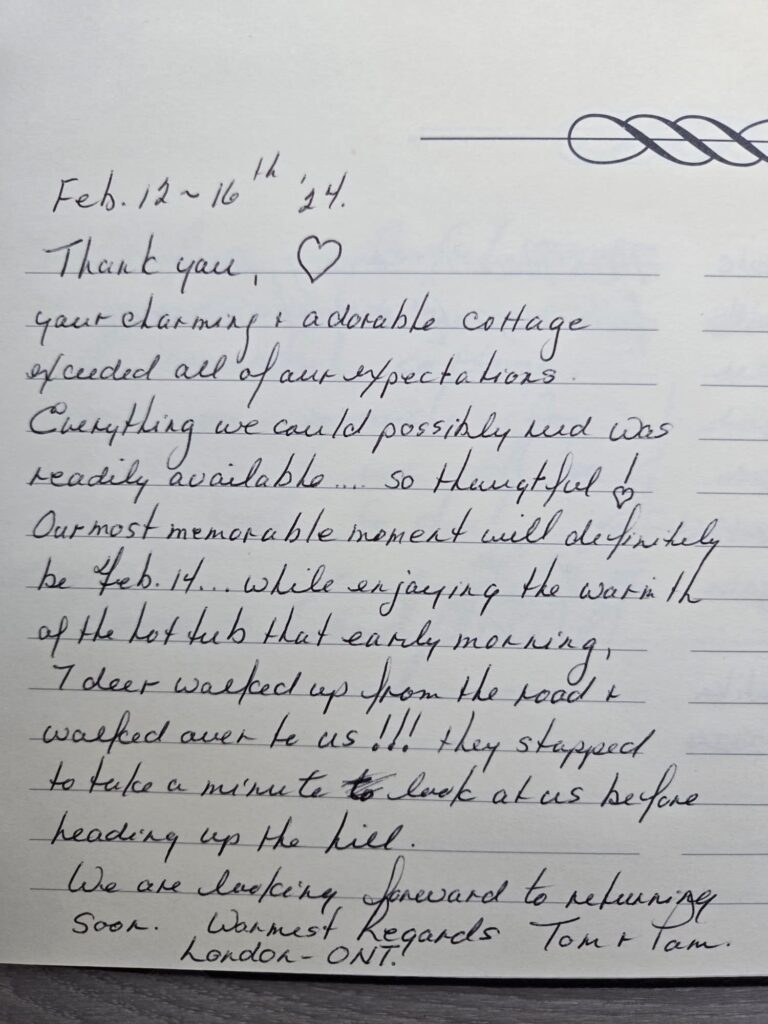 Feb. 12 ~ 16th '24.
Thank you, ♡
your charming + adorable cottage
exceeded all of our expectations.
Everything we could possibly need was
readily available.... so thougtful!
Our most memorable moment will definitely
be Feb. 14... while enjoying the warmth
of the hot tub that early morning,
7 deer walked up from the road +
walked over to us!!! they stopped
to take a minute to look at us before
heading up the hill.
We are looking forward to returning
soon. Warmest Regards Tom + Pam.
London - ONT.